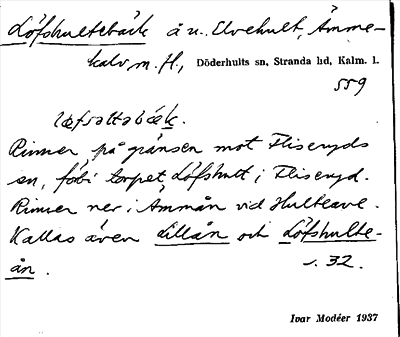 Löfshultebäck å u. Elvehult, Ämme-
kalv m. fl., Döderhults sn, Stranda hd, Kalm. l.
559
Rinner på gränsen mot Fliseryds
sn, förbi torpet Löfshult i Fliseryd.
Rinner ner i Ammån vid Hulteave.
Kallas även Lillån och Löfshulte-
ån. s. 32.
Ivar Modéer 1937